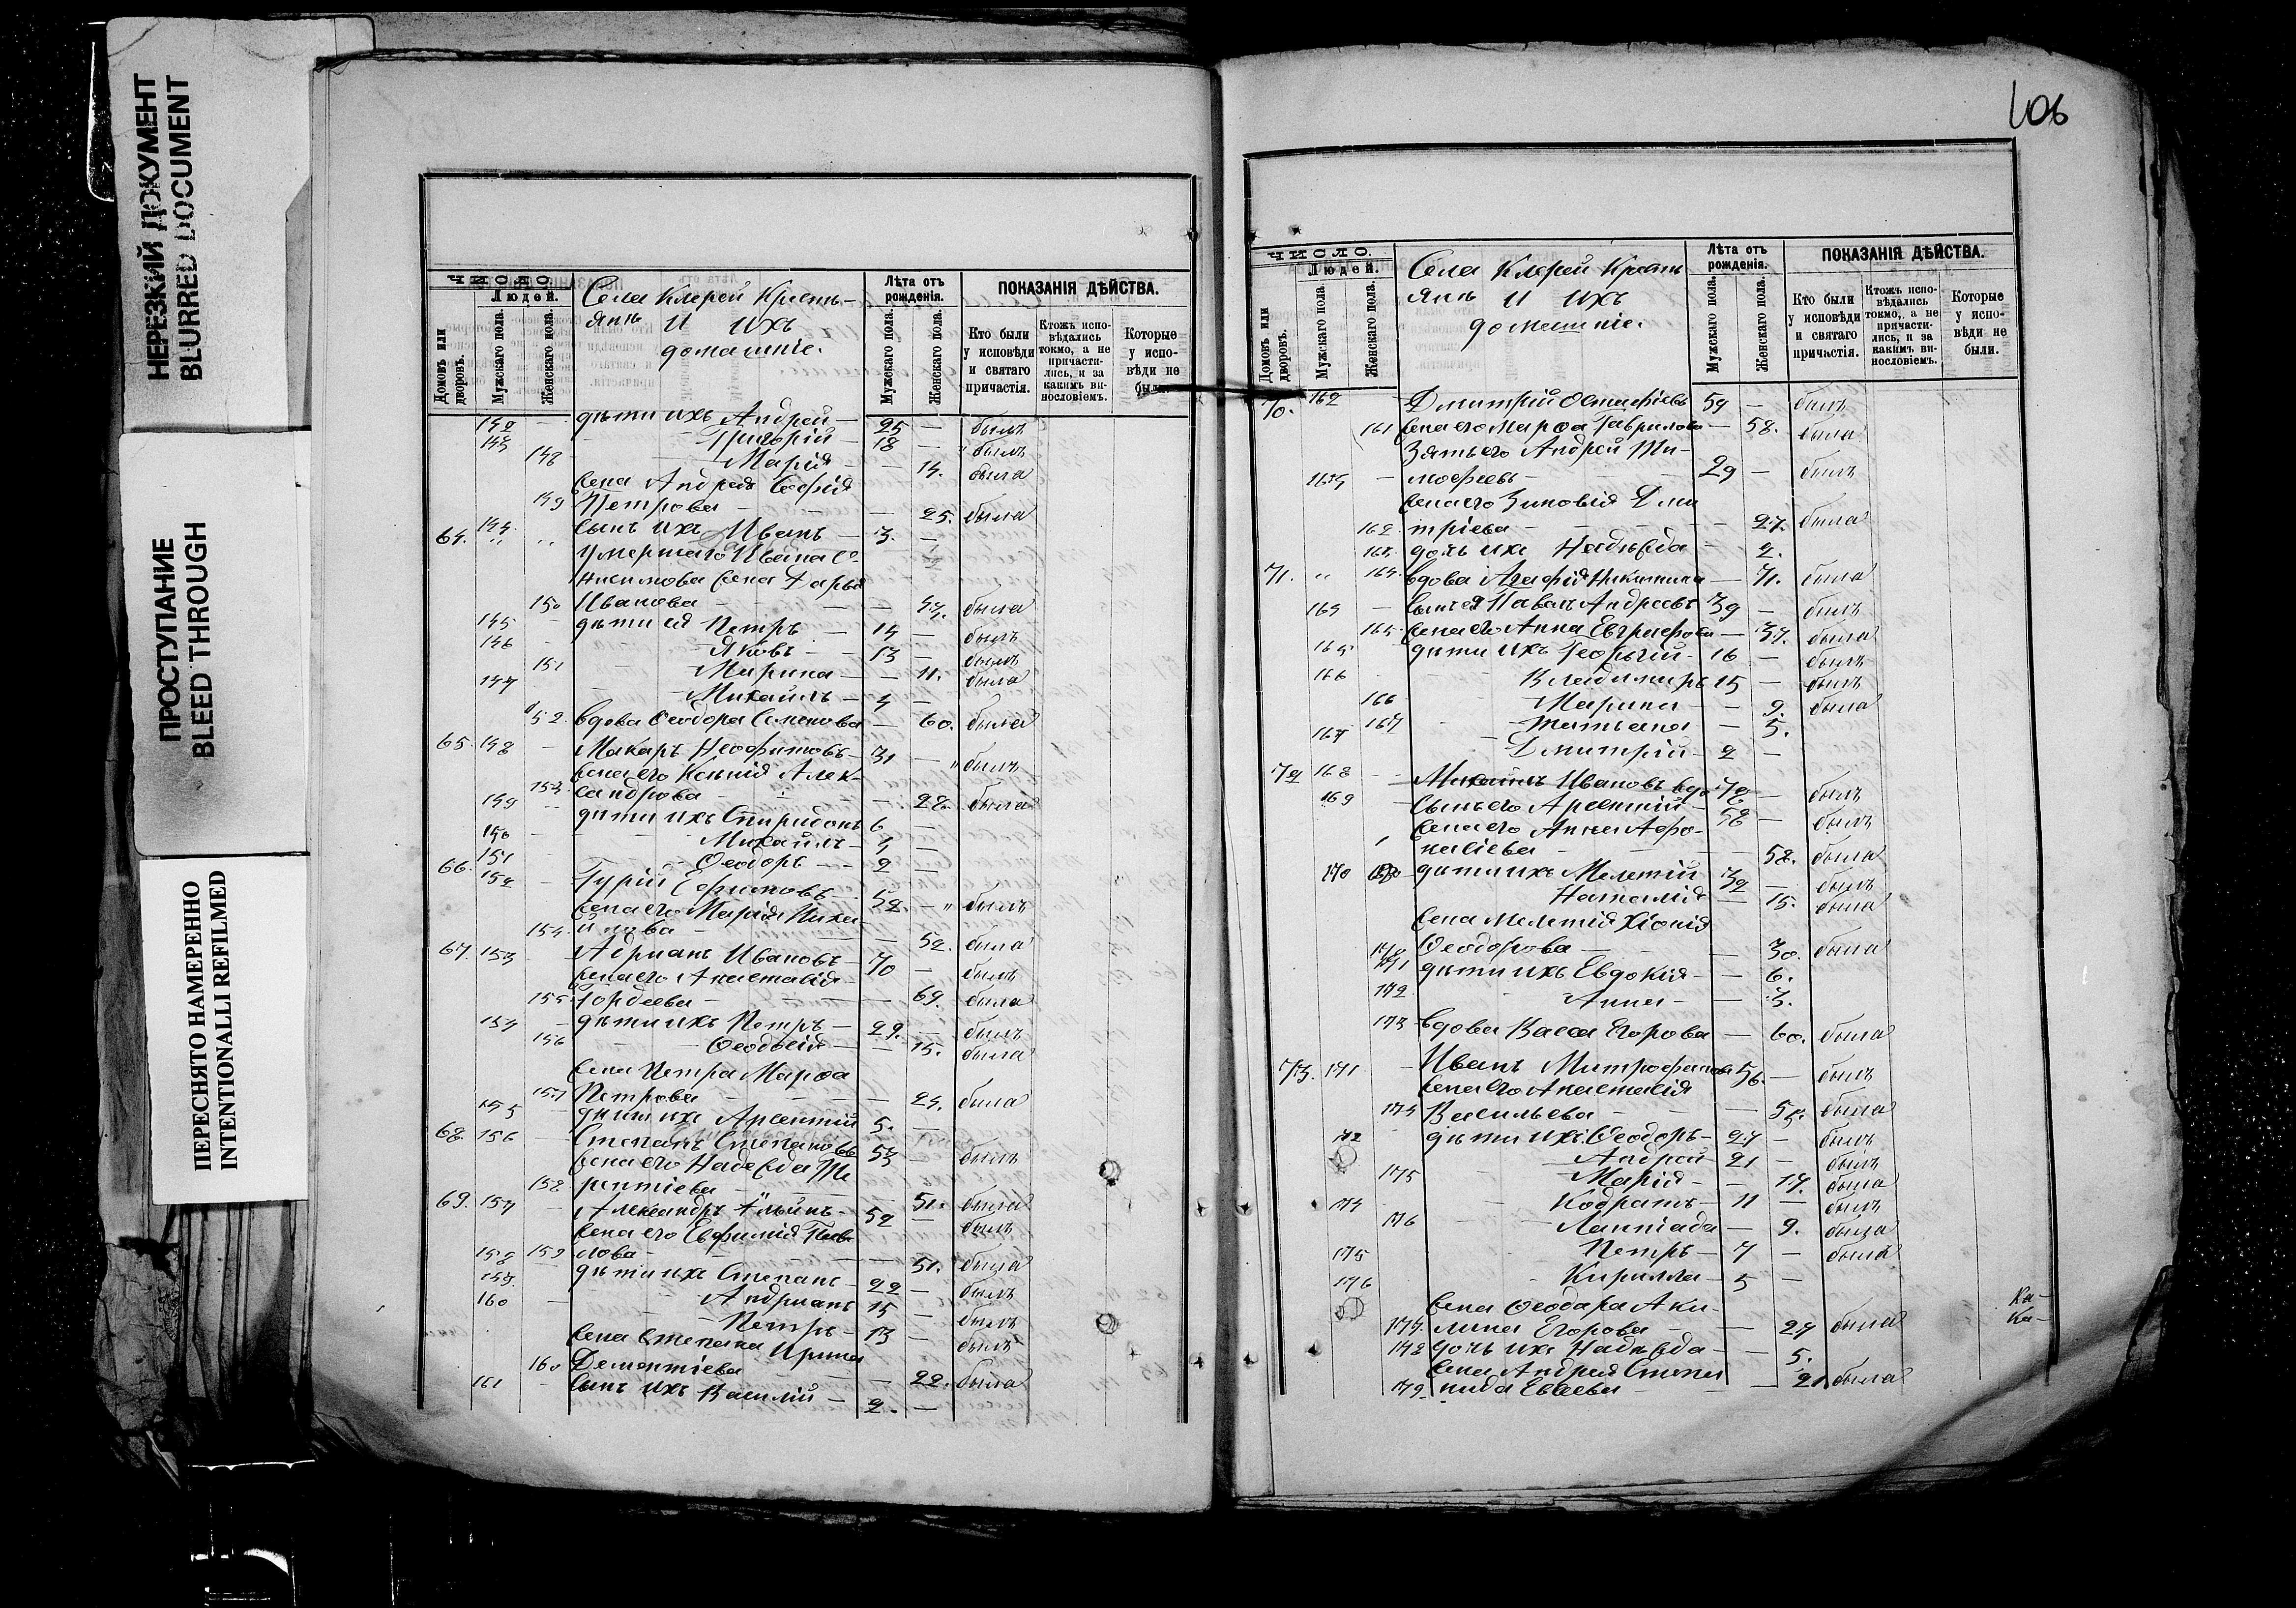 НЕРЕЗКИЙ ДОКУМЕНТ
BLURRED DOCUMENT
ПРОСТУПАНИЕ
BLEED THROUGH
ПЕРЕСНЯТО НАМЕРЕННО
INTENTIONALLI REFILMED
ЧИСЛО
Людей.
Домовъ или дворовъ.
Мужскаго пола.
Женскаго пола.
Села Клерей Кресть-
янъ и ихъ
домашніе.
Лѣта отъ рожденія.
Мужскаго пола.
Женскаго пола.
ПОКАЗАНІЯ ДѢЙСТВА.
Кто были у исповѣди и святаго причастія.
Ктожъ испо-вѣдались токмо, а не причасти-лись, и за какимъ ви-нословіемъ.
Которые у испо-вѣди не были.
142 — дѣти ихъ Андрей — 25 — былъ
143 Григорій — 18 — былъ
148 Марія — — 14. была
жена Андрея Софія
149 Петрова — — 25. была
144. сынъ ихъ Иванъ — 3. —
64. " " умершаго Ивана
жена Дарья
150 Иванова — — 44. была
145 дѣти ея Петръ — 14 — былъ
146 Яковъ — 13 — былъ
151 Марина — — 11. была
147 Михаилъ — 4 —
152. вдова Ѳеодора Семенова — 60. была
65. 148 — Макаръ Неофитовъ — 31 — " былъ
жена его Ксенія Алек-
153. сандрова — — 28. была
149 дѣти ихъ Спиридонъ 6 —
150 Михаилъ — 4 —
151 Ѳеодоръ — 2 —
66. 152 — Гурій Ефимовъ — 52. — " былъ
жена его Марія Михай-
154. лова — — 52. была
67. 153 — Адріанъ Ивановъ — 70 — былъ
жена его Анастасія
155 Гордеева — — 69. была
154 — дѣти ихъ Петръ — 29. — былъ
156 Ѳеодосія — — 15. была
жена Петра Марѳа
157 Петрова — — 24. была
155 дѣти ихъ Арсентій 5. —
68. 156 — Степанъ Степановъ 53 — былъ
жена его Надежда Те-
158 рентіева — — 51. была
69. 157 — Александръ Ильинъ — 52 — былъ
жена его Евфимія Пав-
158 159 лова — — 51. была
159. дѣти ихъ Степанъ — 22 — былъ
160 Андріанъ 15 — былъ
Петръ — 13 — былъ
жена Степана Ирина
160 Дементіева — — 22. была
161 — сынъ ихъ Василій — 2. —
106
ЧИСЛО.
Людей.
Домовъ или дворовъ.
Мужскаго пола.
Женскаго пола.
Села Клерей Кресть
янъ и ихъ
домашніе.
Лѣта отъ рожденія.
Мужскаго пола.
Женскаго пола.
ПОКАЗАНІЯ ДѢЙСТВА.
Кто были у исповѣди и святаго причастія.
Ктожъ испо-вѣдались токмо, а не причасти-лись, и за какимъ ви-нословіемъ.
Которые у испо-вѣди не были.
70. 162 — Дмитрій 59 — былъ
161 жена его Марѳа Гаврилова — 58. была
Зять его Андрей Ти-
— моѳеевъ — 29 — былъ
жена его Зиновія Дми
162. тріева — — 27. была
дочь ихъ Надежда — 2.
71. " 164. вдова Агафія Никитина — 71. была
— сынъ ея Павелъ Андреевъ 39 — былъ
165. жена его Анна Евграфова — 37. была
165 дѣти ихъ Георгій — 16 — былъ
166 Владимиръ 15 — былъ
166 Марина — — 9. была
167 Татьяна — 5.
167 Дмитрій — 2 —
72 168 — Михаилъ Ивановъ вдо 78 — былъ
169 сынъ его Арсентій — 58 — былъ
жена его Анна Аѳа-
насіева — — 58. была
170 дѣти ихъ Мелетій 32 — былъ
Наталія — 15. была
жена Мелетія Хіонія
Ѳеодорова — — 30. была
171 дѣти ихъ Евдокія — — 6.
172 Анна — — 3.
173 вдова Васса Егорова — 60. была
73. 171 — Иванъ Митрофановъ 56. — былъ
жена его Анастасія
174 Васильева — — 55. была
172 дѣти ихъ Ѳеодоръ — 27 — былъ
Андрей — 21 — былъ
175 Марія — — 17. была
174 Кодратъ — 11 — былъ
176 Лампіада — 9. была
175 Петръ — 7 — былъ
176 Кирилла — 5 —
жена Ѳеодора Аки-
177. лина Егорова — — 27 была
178 дочь ихъ Надежда — — 5.
жена Андрея Степа
179. нида Евсеева — — 21 была
Ка-
Ка-